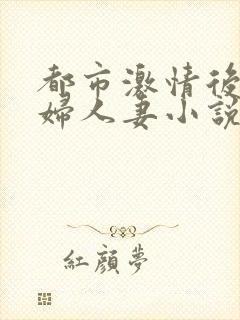 都市激情後
婦人妻小說
紅顏夢